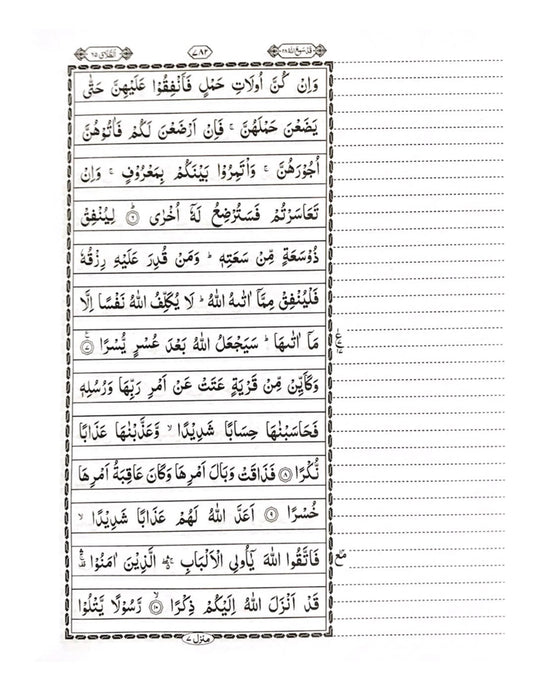 قد سمع الله ٢٨
٧٨٢
الطلاق ٦٥
وَاِنْ كُنَّ اُولَاتِ حَمْلٍ فَاَنْفِقُوْا عَلَيْهِنَّ حَتّٰى
يَضَعْنَ حَمْلَهُنَّ ۚ فَاِنْ اَرْضَعْنَ لَكُمْ فَاٰتُوْهُنَّ
اُجُوْرَهُنَّ ۚ وَاْتَمِرُوْا بَيْنَكُمْ بِمَعْرُوْفٍ ۚ وَاِنْ
تَعَاسَرْتُمْ فَسَتُرْضِعُ لَهٗٓ اُخْرٰى ۝٦ لِيُنْفِقْ
ذُوْسَعَةٍ مِّنْ سَعَتِهٖ ؕ وَمَنْ قُدِرَ عَلَيْهِ رِزْقُهٗ
فَلْيُنْفِقْ مِمَّآ اٰتٰىهُ اللّٰهُ ؕ لَا يُكَلِّفُ اللّٰهُ نَفْسًا اِلَّا
مَآ اٰتٰىهَا ؕ سَيَجْعَلُ اللّٰهُ بَعْدَ عُسْرٍ يُّسْرًا ۝٧
وَكَاَيِّنْ مِّنْ قَرْيَةٍ عَتَتْ عَنْ اَمْرِ رَبِّهَا وَرُسُلِهٖ
فَحَاسَبْنٰهَا حِسَابًا شَدِيْدًا ۙ وَّعَذَّبْنٰهَا عَذَابًا
نُّكْرًا ۝٨ فَذَاقَتْ وَبَالَ اَمْرِهَا وَكَانَ عَاقِبَةُ اَمْرِهَا
خُسْرًا ۝٩ اَعَدَّ اللّٰهُ لَهُمْ عَذَابًا شَدِيْدًا ۙ
فَاتَّقُوا اللّٰهَ يٰٓاُولِى الْاَلْبَابِ ۛۖۚ الَّذِيْنَ اٰمَنُوْا ۛ
قَدْ اَنْزَلَ اللّٰهُ اِلَيْكُمْ ذِكْرًا ۝١٠ رَّسُوْلًا يَّتْلُوْا
منزل ٧